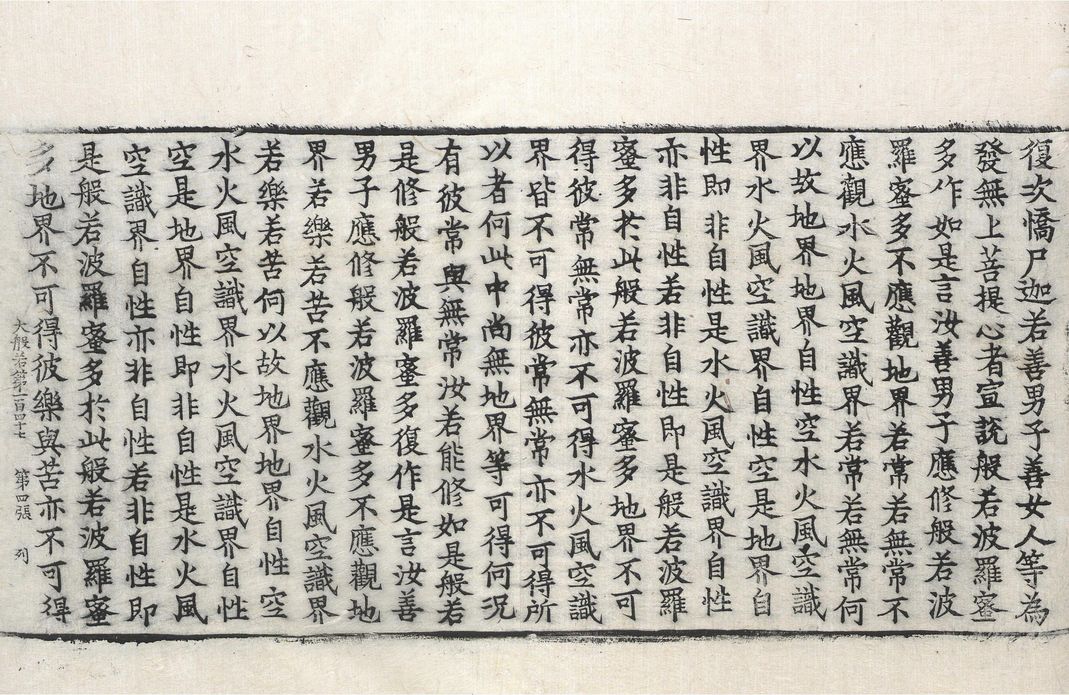 復次憍尸迦若善男子善女人等為
發無上菩提心者宣說般若波羅蜜
多作如是言汝善男子應修般若波
羅蜜多不應觀地界若常若無常不
應觀水火風空識界若常若無常何
以故地界地界自性空水火風空識
界水火風空識界自性空是地界自
性即非自性是水火風空識界自性
亦非自性若非自性即是般若波羅
蜜多於此般若波羅蜜多地界不可
得彼常無常亦不可得水火風空識
界皆不可得彼常無常亦不可得所
以者何此中尚無地界等可得何況
有彼常與無常汝若能修如是般若
是修般若波羅蜜多復作是言汝善
男子應修般若波羅蜜多不應觀地
界若樂若苦不應觀水火風空識界
若樂若苦何以故地界地界自性空
水火風空識界水火風空識界自性
空是地界自性即非自性是水火風
空識界自性亦非自性若非自性即
是般若波羅蜜多於此般若波羅蜜
多地界不可得彼樂與苦亦不可得
大般若第一百四十七 第四張 列